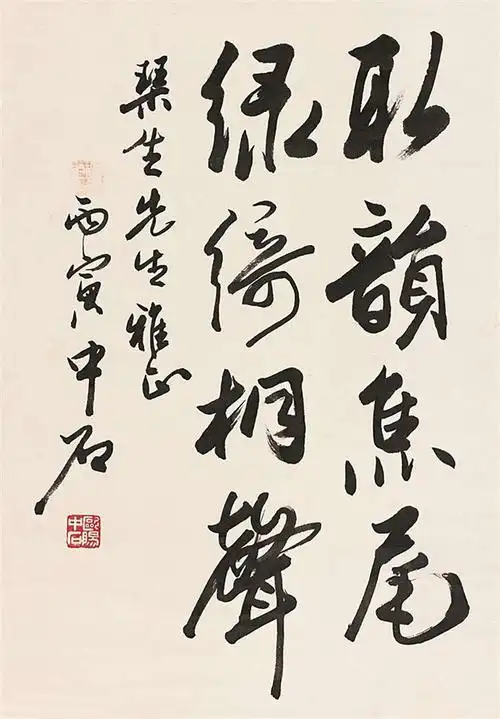 取韻焦尾
綠綺桐聲
琹生先生雅正
丙寅中石
歐陽中石